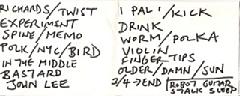 RICHARDS/TWIST
EXPERIMENT
SPINE/MEMO
POLK/NYC/BIRD
IN THE MIDDLE
BASTARD
JOHN LEE
1 PAL!/KICK
DRINK
WORM/POLKA
VIOLIN
FINGER TIPS
OLDER/DAMN/SUN
2/4→END
ROBOT GUITAR